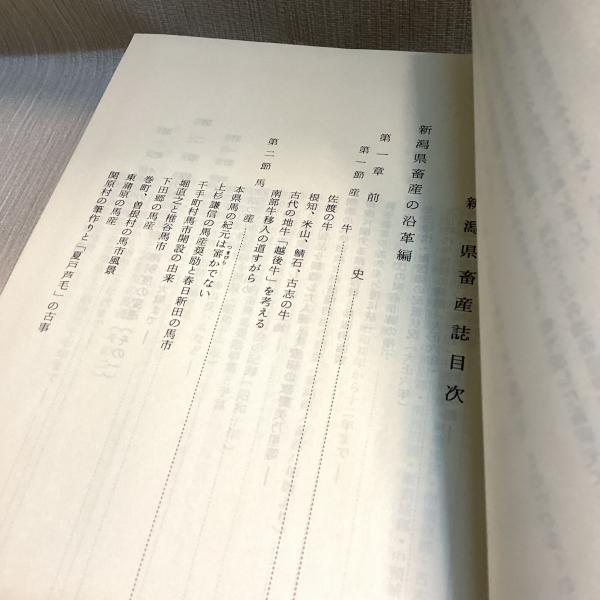 新潟県畜産誌目次
新潟県畜産の沿革編
第一章 前史
第一節 産牛
佐渡の牛
根知、米山、鯖石、古志の牛
古代の地牛「越後牛」を考える
南部牛移入の道すがら
第二節 馬産
本県馬の紀元は審かでない
つまびら
上杉謙信の馬産奨励と春日新田の馬市
千手町村馬市開設の由来
堀直之と椎谷馬市
下田郷の馬産
巻町、曽根村の馬市風景
東蒲原の馬産
関原村の筆作りと「夏戸芦毛」の古事